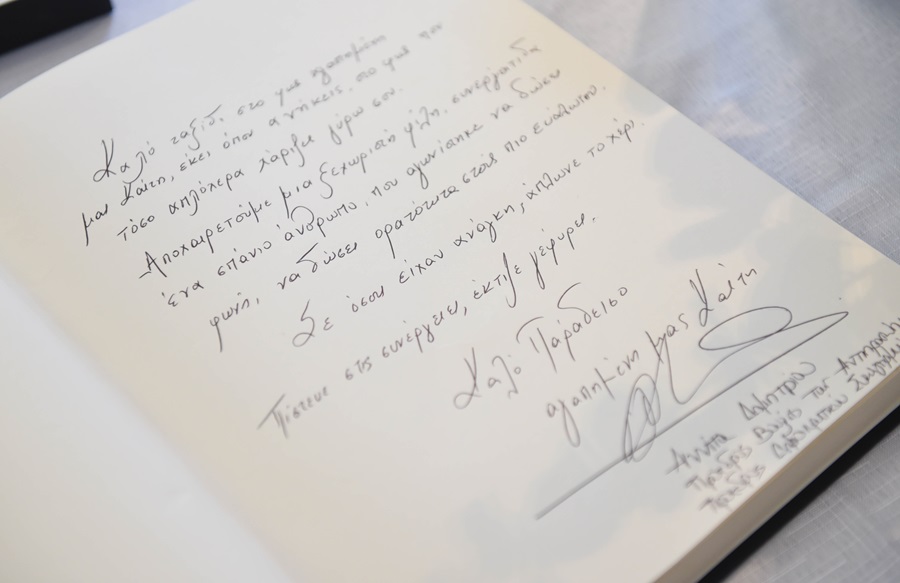 Καλό ταξίδι στο φως αγαπημένη
μας Καίτη, εκεί όπου ανήκεις. στο φως που
τόσο απλόχερα χάριζες γύρω σου.
Αποχαιρετούμε μια ξεχωριστή φίλη, συνεργάτιδα
ένα σπάνιο άνθρωπο, που αγωνίστηκε να δώσει
φωνή, να δώσει ορατότητα στους πιο ευάλωτους.
Σε όσους είχαν ανάγκη, άπλωνε το χέρι.
Πίστευε στις συνέργειες, έκτιζε γέφυρες.
Καλό Παράδεισο
αγαπημένη μας Καίτη
Αννίτα Δημητρίου
Πρόεδρος Βουλής των Αντιπροσώπων
Πρόεδρος Δημοκρατικού Συναγερμού